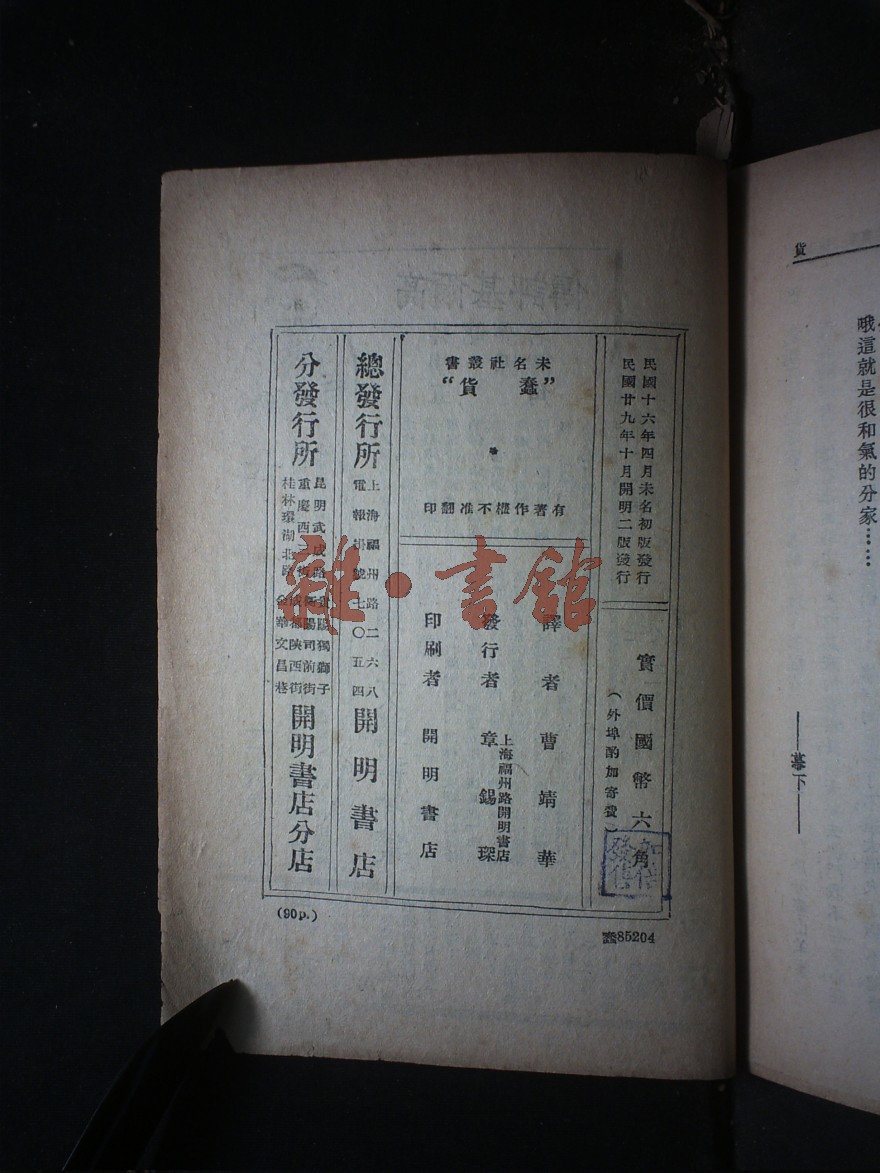 貨
哦這就是很和氣的分家……
——幕下——
民國十六年四月未名初版發行
民國廿九年十月開明二版發行
實價國幣六角
(外埠酌加寄費)
未名社叢書
“蠢貨”
有著作權不准翻印
譯者 曹靖華
發行者 章錫琛
上海福州路開明書店
印刷者 開明書店
總發行所
上海福州路二六八
電報掛號七〇五四
開明書店
分發行所
昆明武成路
重慶西
桂林環湖北路
貴陽獨獅子
衡陽司前街
成都陝西街
金華文昌巷
開明書店分店
(90p.)
85204
雜·書館